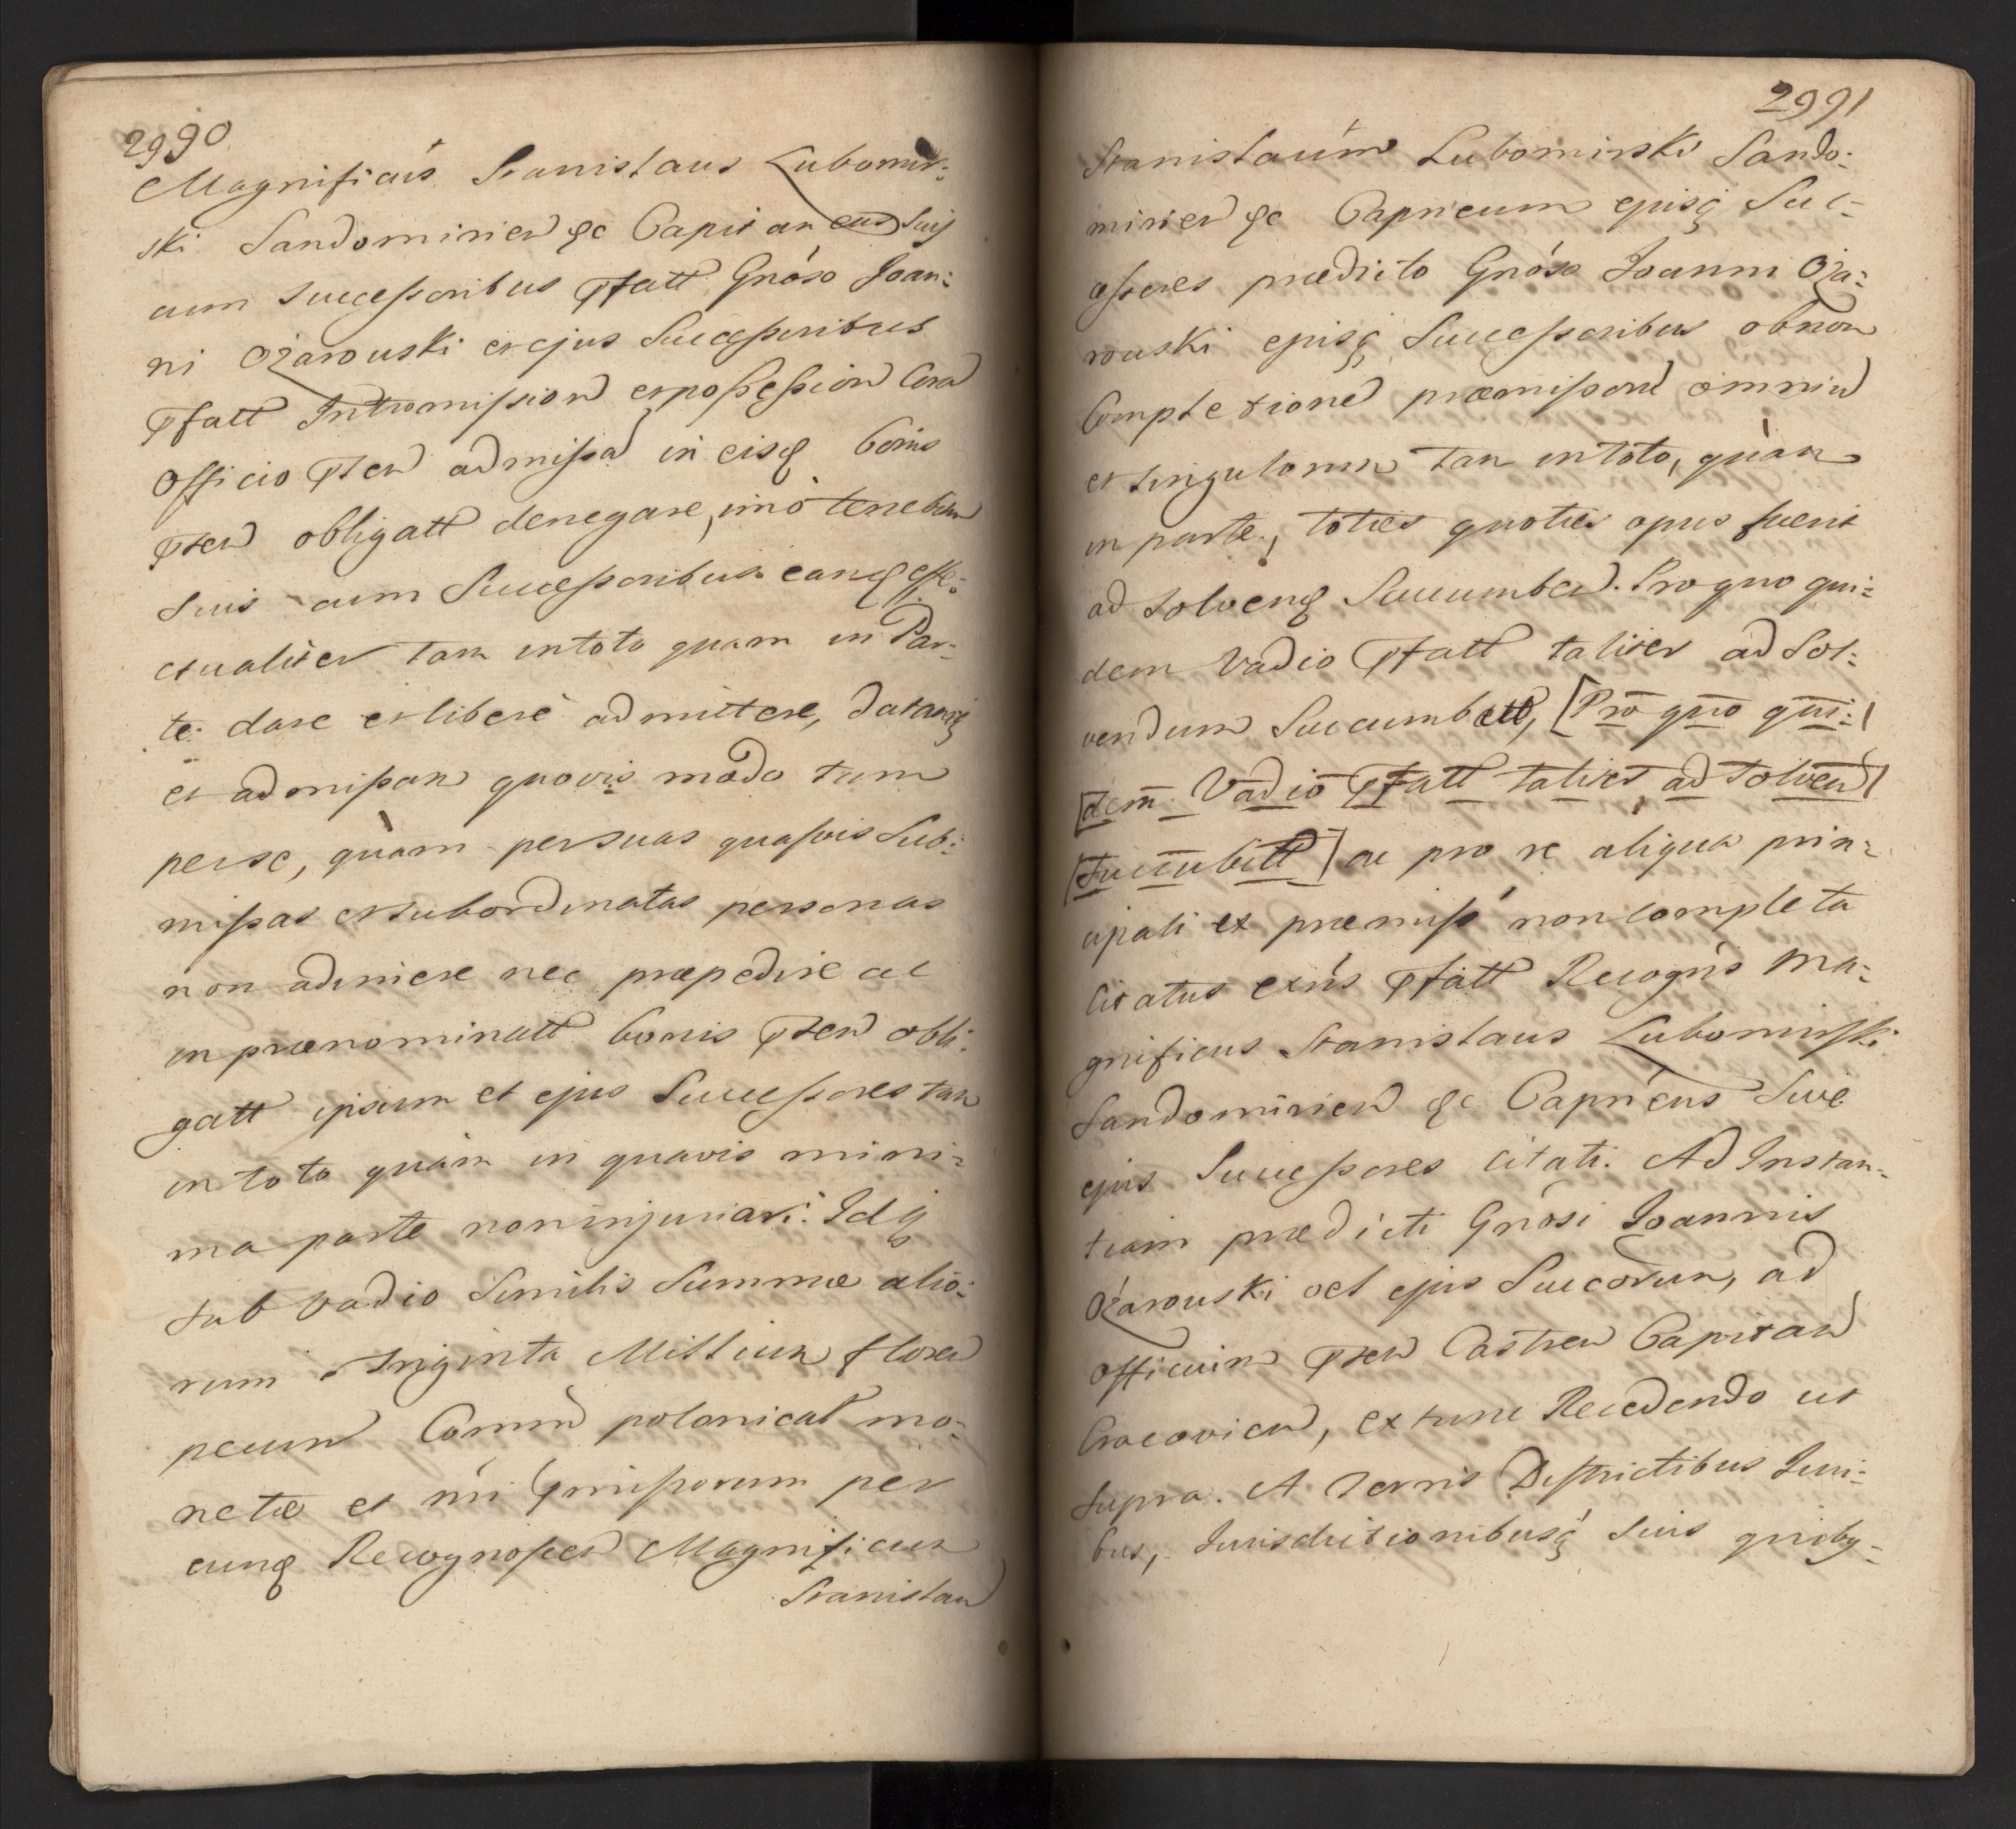 2990
Magnificus Stanislaus Lubomir:
ski Sandomirien &c Capitaneus Suis
cum Successoribus Pfatt Gnóso Joan:
ni Ożarouski et ejus Successoribus
Pfatt Intromission et possession Cora
Officio Pten admissa in eisq bonis
Pten obligatt denegare, imò tenebun
Suis cum Successoribus eanq effe:
ctualiter tam in toto quam in Par:
te dare et liberè admittere, datamq
et admissam quovis modo tam
per se, quàm per suas quasvis Sub:
missas et subordinatas personas
non adimere nec præpedire ac
in prænominatt bonis Pten obli:
gatt ipsum et ejus Successores tam
in toto quàm in quavis mini:
ma parte non injuriari. Idq
sub vadio Similis Summæ alio:
rum triginta Millium floren
pecun Comm̃ polonical mo:
netæ et nri Pmissorum per
eunq Recognoscen Magnificum
Stanislau
2991
Stanislaúm Lubomirski Sando:
mirien &c Capneum ejusq Suc:
cessores prædicto Gnóso Joanni Oża:
rouski ejusq Successoribus ob non
Completione præmissoru omniu
et singulorum tam in toto, quàm
in parte, toties quoties opus fuerit
ad solvenq Succumben. Pro quo qui:
dem Vadio Pfatt taliter ad Sol:
vendum Succumbett, [Pro quo qui:]
[dem Vadio Pfatt taliter ad solven]
[succubitt] ac pro re aliqua prin:
cipali ex præmiss non completa
Citatus exns Pfatt Recogns Ma:
gnificus Stanislaus Lubomirski
Sandomirien &c Capneus Sive
ejus Successores citati. Ad Instan:
tiam prædicti Gnósi Joannis
Ożarouski vel ejus Succorum, ad
Officium Pten Castren Capitan
Cracovien, extunc Recedendo ut
supra. A Terris Districtibus Juri:
bus, Jurisdictionibusq Suis quiby: